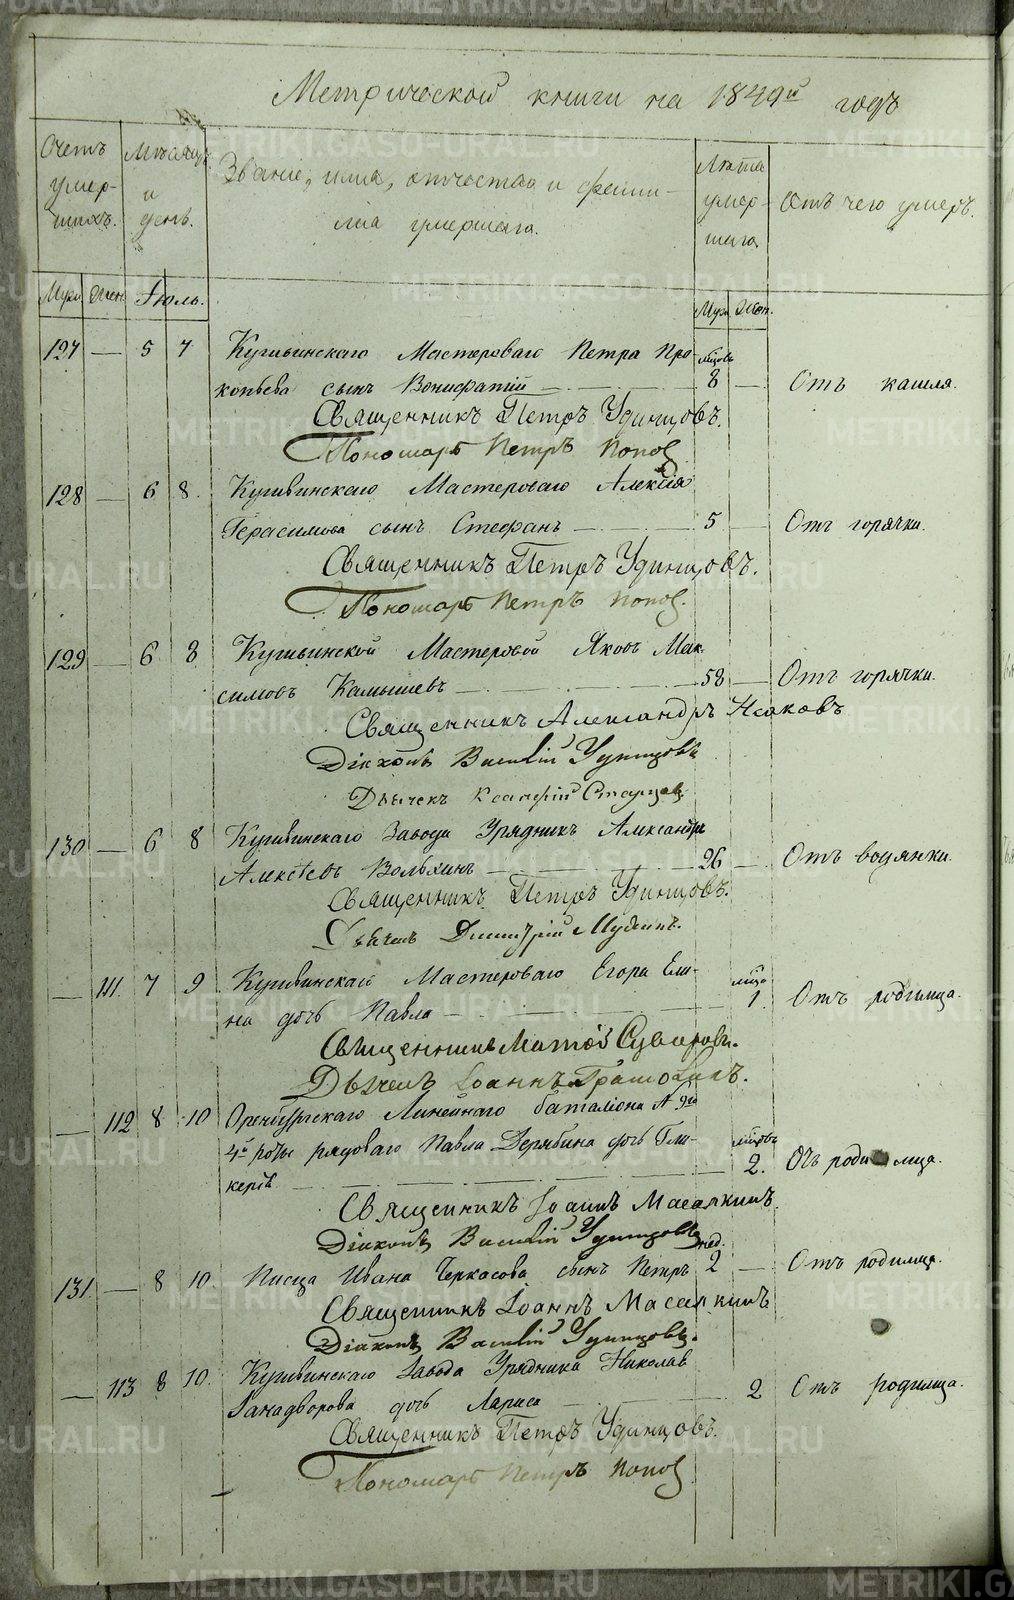 Метрической книги на 1849й годъ
Счетъ умер-шихъ.
Мѣсяцъ и день.
Званіе, имя, отчество и фами-
лія умершаго.
Лѣта умер-шаго
Отъ чего умеръ.
Муж. Жен. Іюль. Муж. Жен.
127 — 5 7 Кушвинскаго Мастероваго Петра Про- мѣсцовъ
копьева сынъ Вонифатій — 8 — Отъ кашля.
Священникъ Петръ Удинцовъ.
Пономарь Петръ Поповъ
128 — 6 8. Кушвинскаго Мастероваго Алексѣя
Герасимова сынъ Стефанъ — 5 — Отъ горячки.
Священникъ Петръ Удинцовъ.
Пономарь Петръ Поповъ.
129 — 6 8 Кушвинской Мастеровой Яковъ Мак-
симовъ Камышевъ — 58 — Отъ горячки.
Священникъ Александръ Исаковъ
Діаконъ Василій Удинцовъ
Дьячекъ Старцевъ
130 — 6 8 Кушвинскаго Завода Урядникъ Александръ
Алексѣевъ Вольхинъ — 26 — Отъ водянки.
Священникъ Петръ Удинцовъ.
Дьячекъ Димитрій Мудринъ.
— 111. 7 9 Кушвинскаго Мастероваго Егора Ели-
на дочь Павла — 1 Отъ родимца.
Священникъ Матѳій Суворовъ.
Дьячекъ Іоаннъ Грамолинъ.
— 112 8 10 Оренбургскаго Линейнаго баталіона № 9го
4й роты рядоваго Павла Дерябина дочь Гли- мѣсцовъ
керія. — 2. Отъ родимца.
Священникъ Іоаннъ Масалкинъ.
Діаконъ Василій Удинцовъ
нед.
131 — 8 10. Писца Ивана Черкасова сынъ Петръ 2 — Отъ родимца.
Священникъ Іоаннъ Масалкинъ
Діаконъ Василій Удинцовъ.
— 113 8 10. Кушвинскаго Завода Урядника Николая
Занадворова дочь Лариса — 2 Отъ родимца.
Священникъ Петръ Удинцовъ.
Пономарь Петръ Поповъ
METRIKI.GASO-URAL.RU